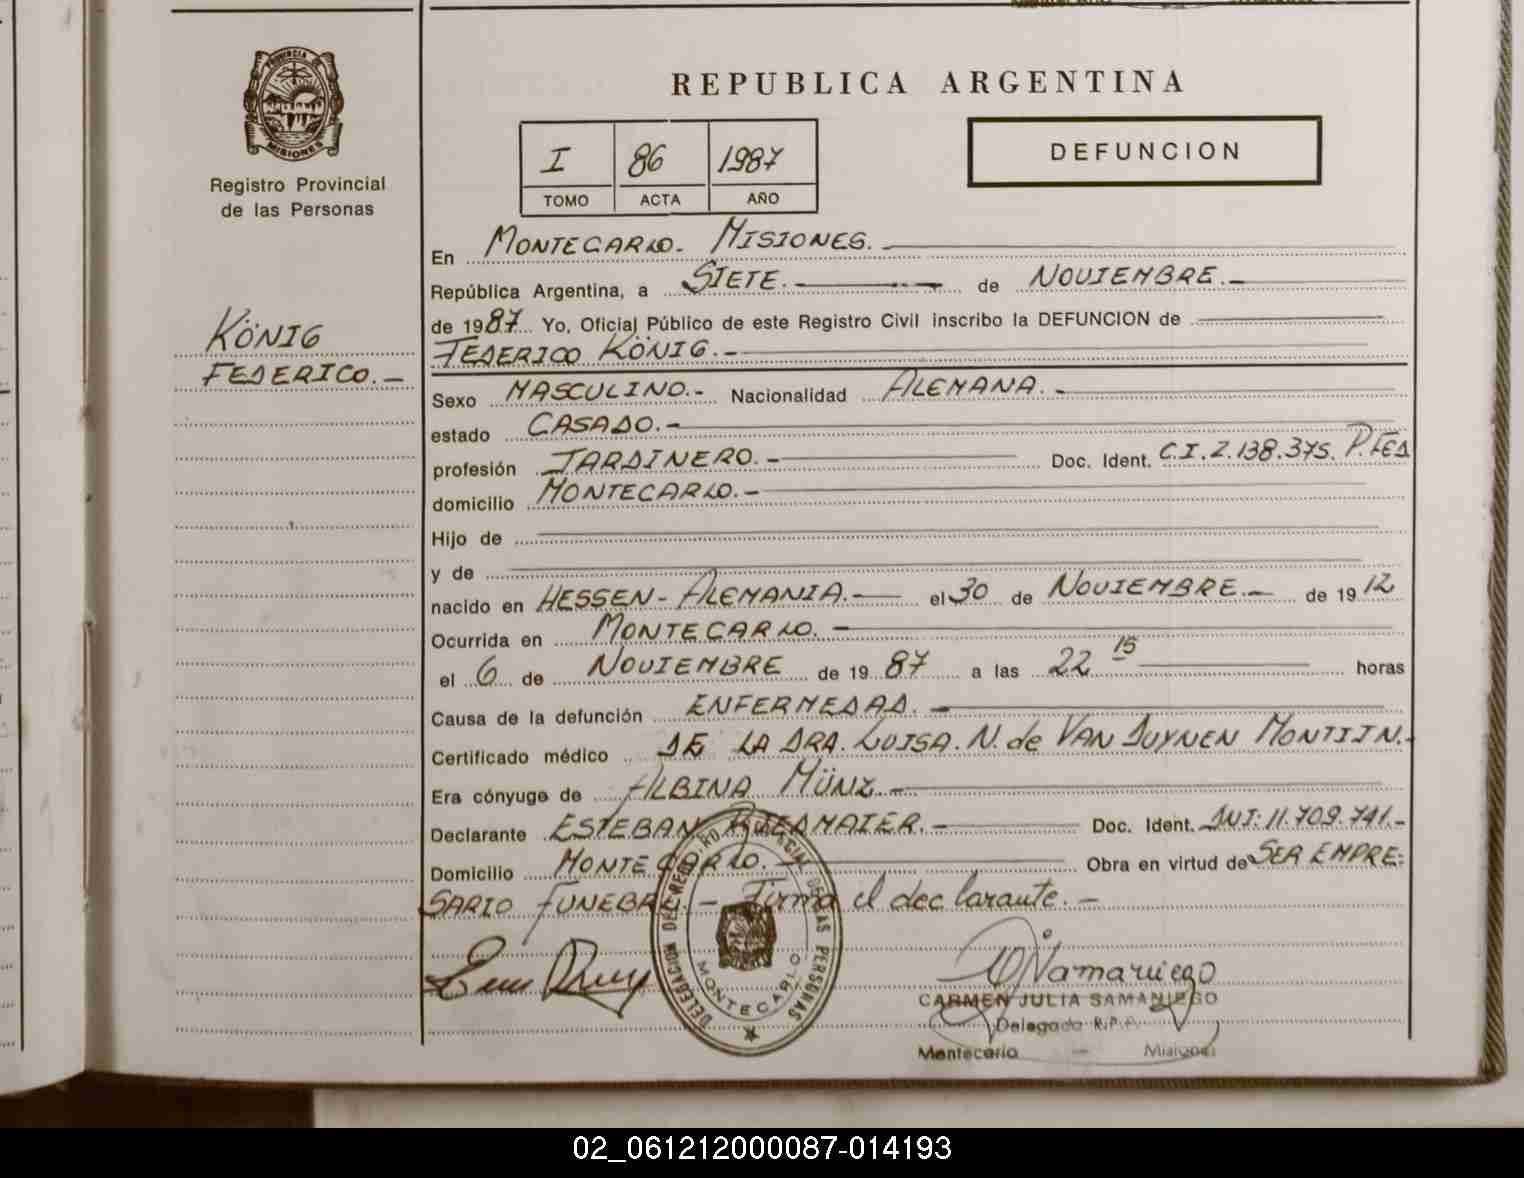 REPUBLICA ARGENTINA
PROVINCIA DE
MISIONES
Registro Provincial
de las Personas
I 86 1987
TOMO ACTA AÑO
DEFUNCION
KÖNIG
FEDERICO.-
En MONTECARLO. MISIONES.
República Argentina, a SIETE. de NOVIEMBRE.-
de 1987 Yo, Oficial Público de este Registro Civil inscribo la DEFUNCION de
FEDERICO KÖNIG.-
Sexo MASCULINO.- Nacionalidad ALEMANA.-
estado CASADO.-
profesión JARDINERO.- Doc. Ident. C.I. 2.138.375. P.FED
domicilio MONTECARLO.-
Hijo de
y de
nacido en HESSEN-ALEMANIA.- el 30 de NOVIEMBRE.- de 1912
Ocurrida en MONTECARLO.-
el 6 de NOVIEMBRE de 1987 a las 22 15 horas
Causa de la defunción ENFERMEDAD.-
Certificado médico DE LA DRA. LUISA. N. de VAN DUYNEN MONTIJN.-
Era cónyuge de ALBINA MÜNZ.-
Declarante ESTEBAN Doc. Ident. DNI: 11.709.741.-
Domicilio MONTECARLO.- Obra en virtud de SER EMPRE=
SARIO FUNEBRE.- Firma el declarante.-
DELEGACION DEL REGISTRO PROVINCIAL DE LAS PERSONAS
MONTECARLO
CARMEN JULIA SAMANIEGO
Delegada R.P.P.
Montecarlo - Misiones
02_061212000087-014193